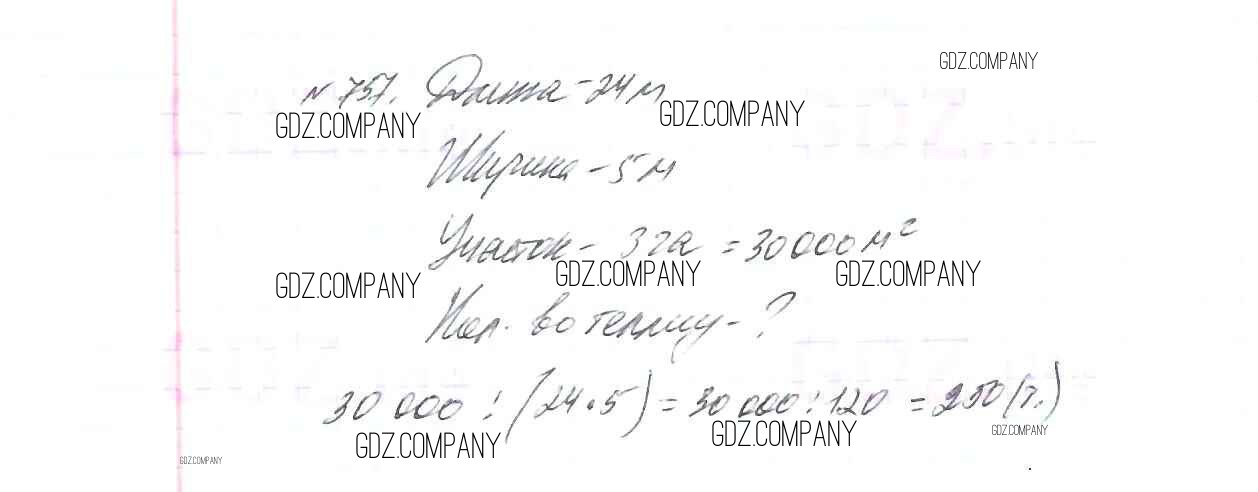 GDZ.COMPANY
№ 757. Длина - 24 м
GDZ.COMPANY GDZ.COMPANY
Ширина - 5 м
Участок - 3 га = 30 000 м²
GDZ.COMPANY GDZ.COMPANY GDZ.COMPANY
Кол. во теплиц - ?
30 000 : (24 • 5) = 30 000 : 120 = 250 (т.)
GDZ.COMPANY GDZ.COMPANY GDZ.COMPANY
GDZ.COMPANY